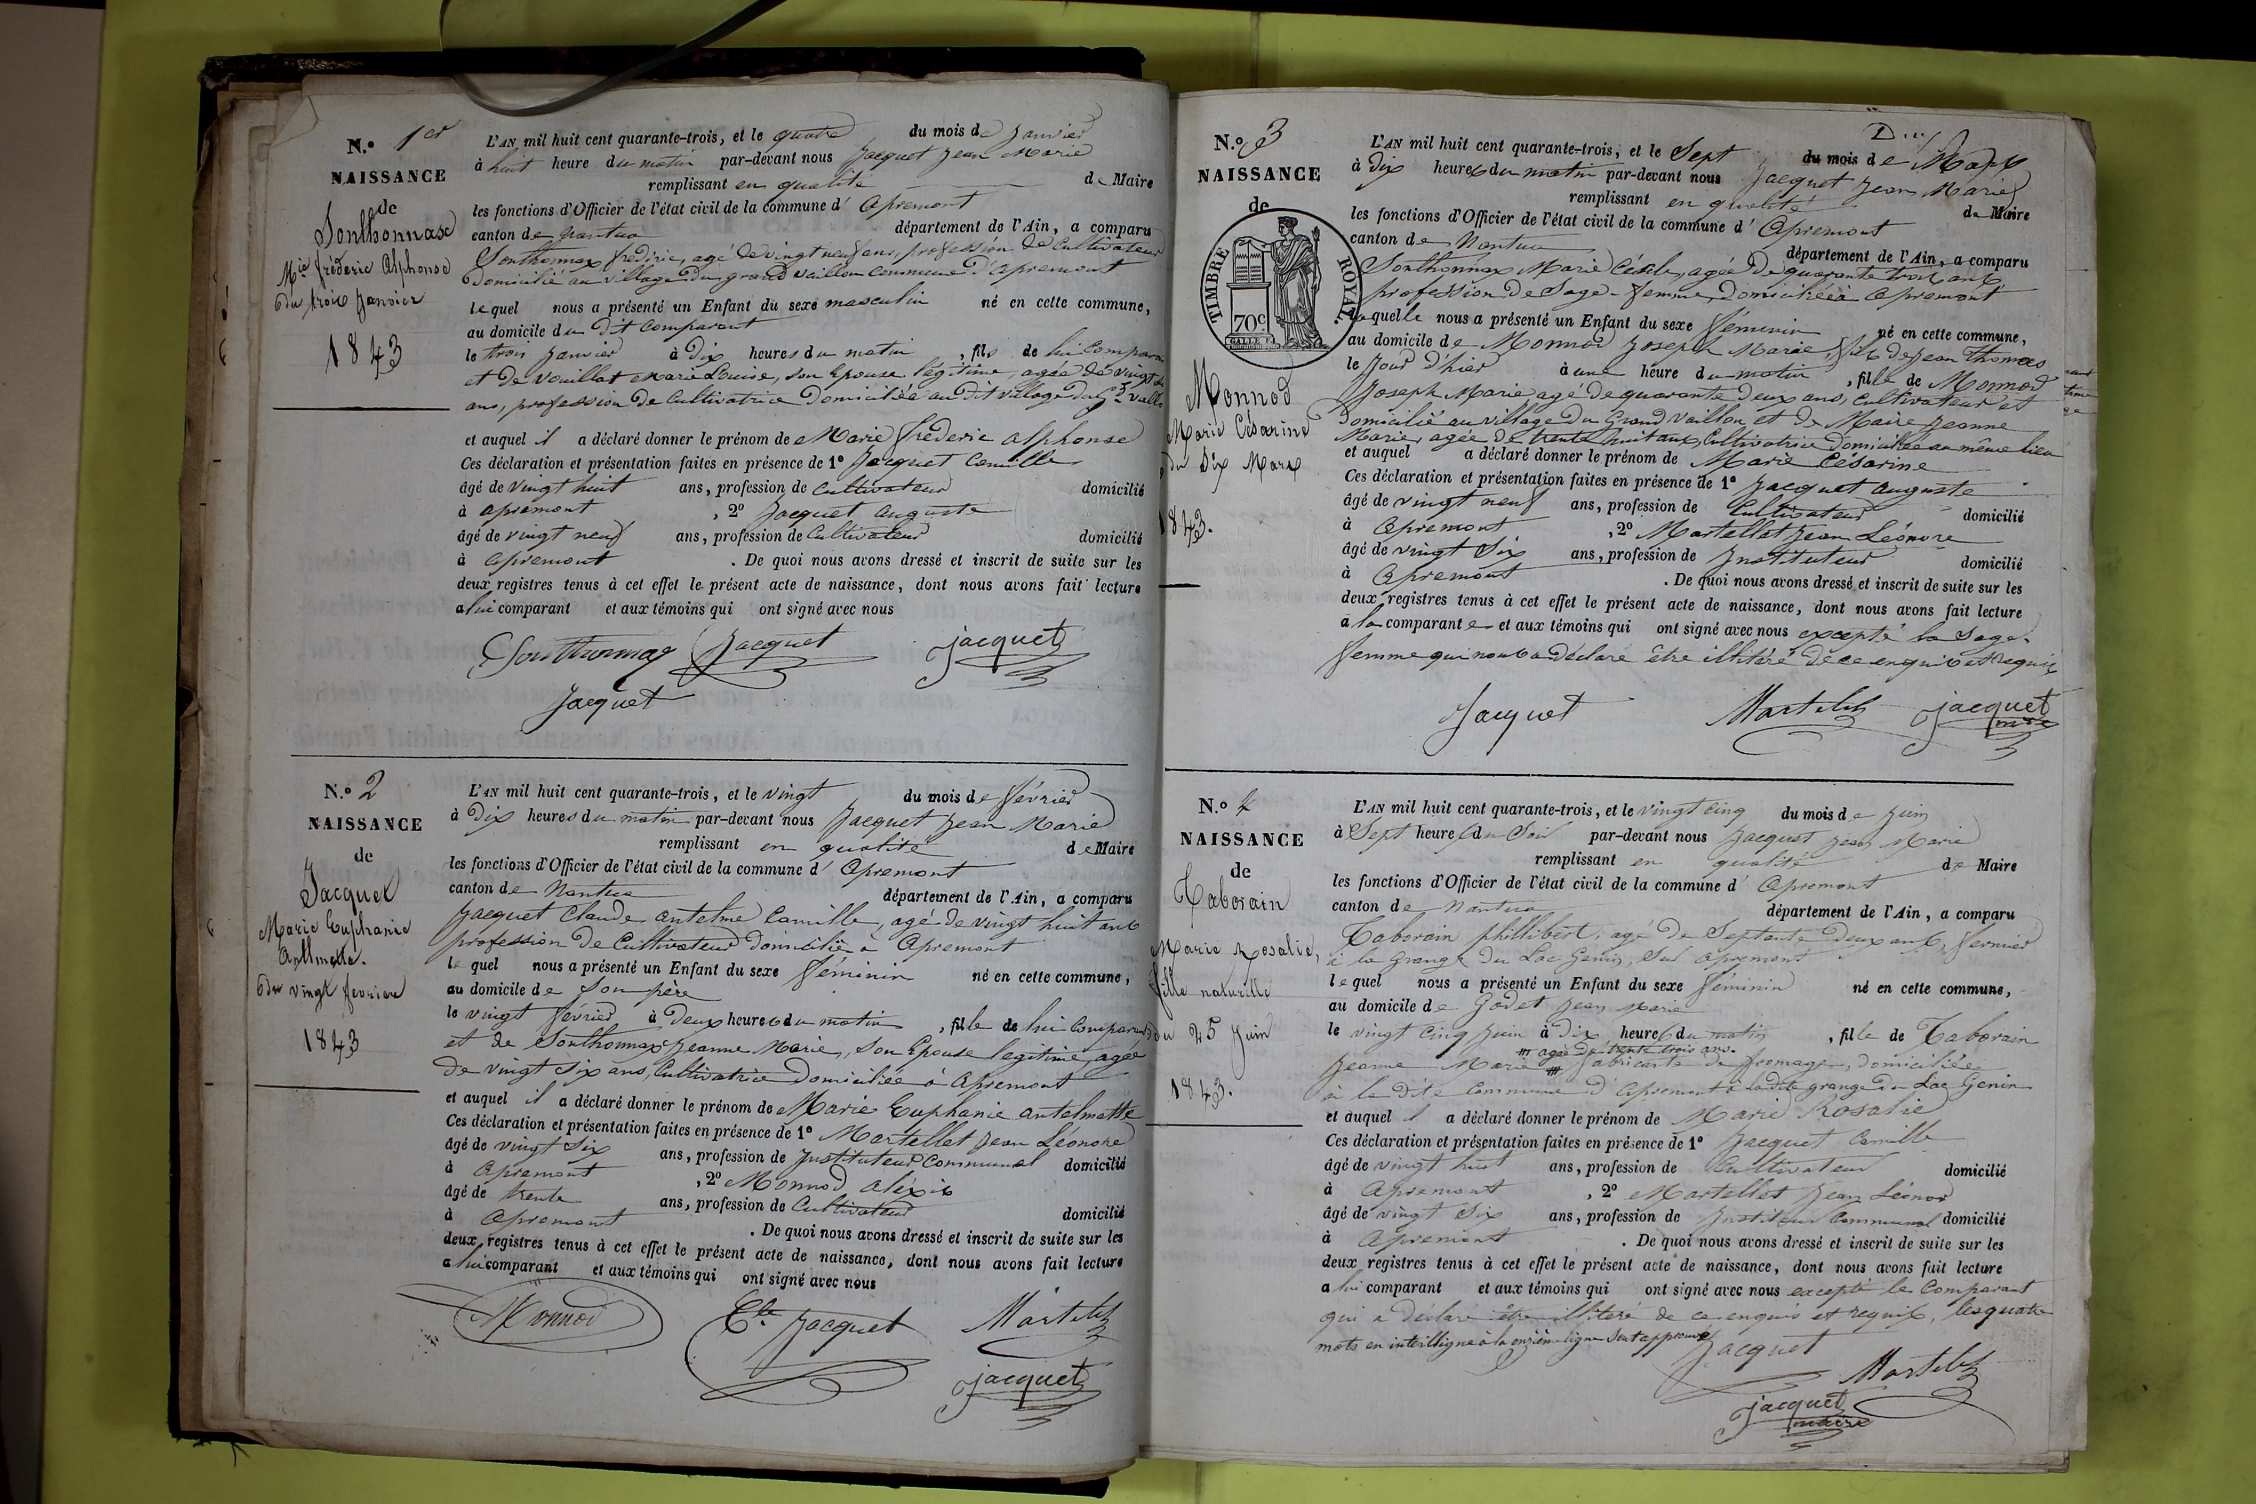 N.º 1er
NAISSANCE
de
Sonthonnax
Mie fréderic Alphonse
du trois Janvier
1843
L'AN mil huit cent quarante-trois, et le quatre du mois de Janvier
à huit heure du matin par-devant nous Jacquet Jean Marie
remplissant en qualité de Maire
les fonctions d'Officier de l'état civil de la commune d' Apremont
canton de Nantua département de l'Ain, a comparu
Sonthonnax frédéric, agé de vingt neuf ans, profession de Cultivateur
Domicilié au village du grand vaillon commune d'Apremont
lequel nous a présenté un Enfant du sexe masculin né en cette commune,
au domicile du dit comparant
le trois Janvier à Dix heures du matin , fils de lui Comparant
et de Vouillat Marie Louise, son Epouse légitime, agée de vingt
ans, profession de Cultivatrice Domiciliée au dit village du Gd vaillon
et auquel il a déclaré donner le prénom de Marie fréderic alphonse
Ces déclaration et présentation faites en présence de 1º Jacquet Camille
âgé de vingt huit ans, profession de Cultivateur domicilié
à apremont , 2º Jacquet auguste
âgé de vingt neuf ans, profession de Cultivateur domicilié
à apremont . De quoi nous avons dressé et inscrit de suite sur les
deux registres tenus à cet effet le présent acte de naissance, dont nous avons fait lecture
a lui comparant et aux témoins qui ont signé avec nous
Sonthonnax Jacquet jacquet
Jacquet
N.º 2
NAISSANCE
de
Jacquet
Marie Euphanie
Antlmette.
du vingt fevrier
1843
L'AN mil huit cent quarante-trois, et le vingt du mois de février
à Dix heures du matin par-devant nous Jacquet Jean Marie
remplissant en qualité de Maire
les fonctions d'Officier de l'état civil de la commune d' Apremont
canton de Nantua département de l'Ain, a comparu
Jacquet Claude antelme Camille, agé de vingt huit ans
profession de Cultivateur domicilié à Apremont
le quel nous a présenté un Enfant du sexe féminin né en cette commune,
au domicile de son père
le vingt février à Deux heures du matin , fille de lui Comparant
et de Sonthonnax Jeanne Marie, son Epouse legitime, agée
de vingt six ans, Cultivatrice Domiciliée à Apremont
et auquel il a déclaré donner le prénom de Marie Euphanie antelmette
Ces déclaration et présentation faites en présence de 1º Martellet Jean Léonore
âgé de vingt six ans, profession de Instituteur Communal domicilié
à Apremont , 2º Monnod aléxis
âgé de trente ans, profession de Cultivateur domicilié
à Apremont . De quoi nous avons dressé et inscrit de suite sur les
deux registres tenus à cet effet le présent acte de naissance, dont nous avons fait lecture
a lui comparant et aux témoins qui ont signé avec nous
Monnod Cle Jacquet Martelet
jacquet
N.º 3
NAISSANCE
de
TIMBRE ROYAL.
70c.
Monnod
Marie Césarine
du six Mars
1843.
L'AN mil huit cent quarante-trois, et le Sept du mois de Mars
à Dix heures du matin par-devant nous Jacquet Jean Marie
remplissant en qualité de Maire
les fonctions d'Officier de l'état civil de la commune d' Apremont
canton de Nantua département de l'Ain, a comparu
Sonthonnax Marie Cécile, agée de quarante trois ans,
profession de Sage-femme, Domiciliée à Apremont
laquelle nous a présenté un Enfant du sexe féminin né en cette commune,
au domicile de Monnod Joseph Marie, fils de Jean Thomas
le Jour d'hier à une heure du matin , fille de Monnod
Joseph Marie agé de quarante deux ans, Cultivateur et
Domicilié au village du Grand vaillon et de Maire Jeanne
Marie, agée de trente huit ans, Cultivatrice domiciliée au même lieu
et auquel a déclaré donner le prénom de Marie Césarine
Ces déclaration et présentation faites en présence de 1º Jacquet auguste
âgé de vingt neuf ans, profession de Cultivateur domicilié
à Apremont , 2º Martellet Jean Léonore
âgé de vingt six ans, profession de Instituteur domicilié
à Apremont . De quoi nous avons dressé et inscrit de suite sur les
deux registres tenus à cet effet le présent acte de naissance, dont nous avons fait lecture
à la comparante et aux témoins qui ont signé avec nous excepté la Sage-
femme qui nous a déclaré être illitéré de ce enquis et requis
Jacquet Martelet jacquet
mre
N.º 4
NAISSANCE
de
Taborain
Marie Rosalie,
fille naturelle
du 25 Juin
1843.
L'AN mil huit cent quarante-trois, et le vingt cinq du mois de Juin
à Sept heures du Soir par-devant nous Jacquet Jean Marie
remplissant en qualité de Maire
les fonctions d'Officier de l'état civil de la commune d' Apremont
canton de Nantua département de l'Ain, a comparu
Taborain phillibert, agé de Septante deux ans, fermier
à la Grange du Lac Genin, Sur Apremont
lequel nous a présenté un Enfant du sexe féminin né en cette commune,
au domicile de Godet Jean Marie
le vingt cinq Juin à Dix heures du matin , fille de Taborain
agée de trente trois ans.
Jeanne Marie fabricante de fromage, domiciliée
à la dite Commune d'Apremont à ladite grange du Lac Genin
et auquel il a déclaré donner le prénom de Marie Rosalie
Ces déclaration et présentation faites en présence de 1º Jacquet Camille
âgé de vingt huit ans, profession de Cultivateur domicilié
à Apremont , 2º Martellet Jean Léonor
âgé de vingt six ans, profession de Instituteur Communal domicilié
à Apremont . De quoi nous avons dressé et inscrit de suite sur les
deux registres tenus à cet effet le présent acte de naissance, dont nous avons fait lecture
a lui comparant et aux témoins qui ont signé avec nous excepté le Comparant
qui a déclaré être illitéré de ce enquis et requis, les quatre
mots en interlligne à la onzième ligne sont approuvés
Jacquet Martelet
jacquet
maire